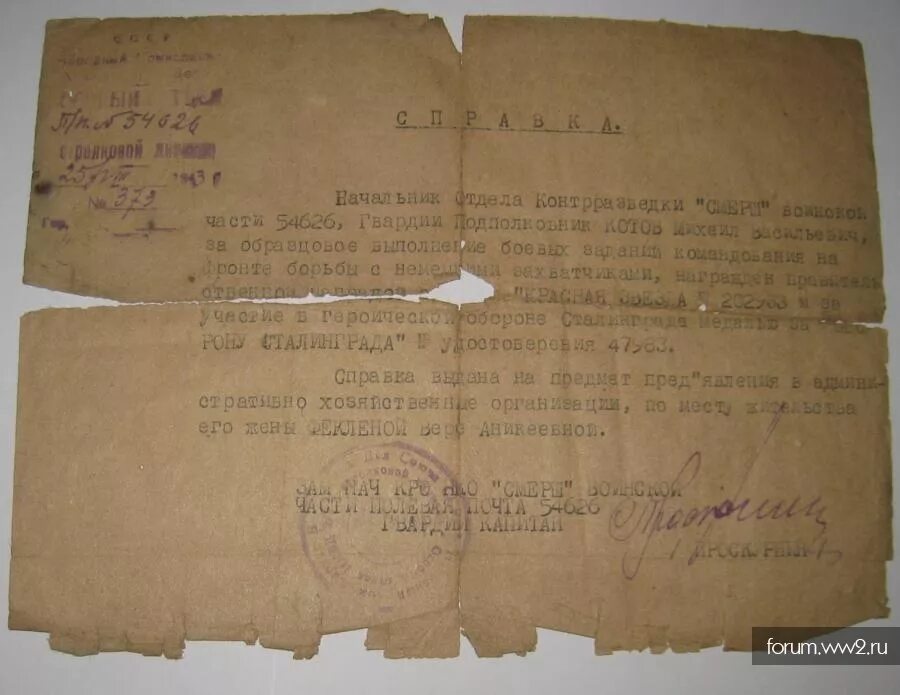 СССР
П/п. № 54626
стрелковой дивизии
25/VIII 1943 г
№ 373
СПРАВКА.
Начальник Отдела Контрразведки "СМЕРШ" воинской
части 54626, Гвардии Подполковник КОТОВ Михаил Васильевич,
за образцовое выполнение боевых заданий командования на
фронте борьбы с немецкими захватчиками, награжден правитель
ственной наградой "КРАСНАЯ ЗВЕЗДА 202983 и за
участие в героической обороне Сталинграда медалью за
РОНУ СТАЛИНГРАДА" № удостоверения 47983.
Справка выдана на предмет пред"явления в админи-
стративно хозяйственные организации, по месту жительства
его жены ФЕКЛЕНОЙ Вере Аникеевной.
ЗАМ НАЧ КРО НКО "СМЕРШ" ВОИНСКОЙ
ЧАСТИ ПОЛЕВАЯ ПОЧТА 54626
ГВАРДИИ КАПИТАН
/ПРОСКУРНИН/
forum.ww2.ru